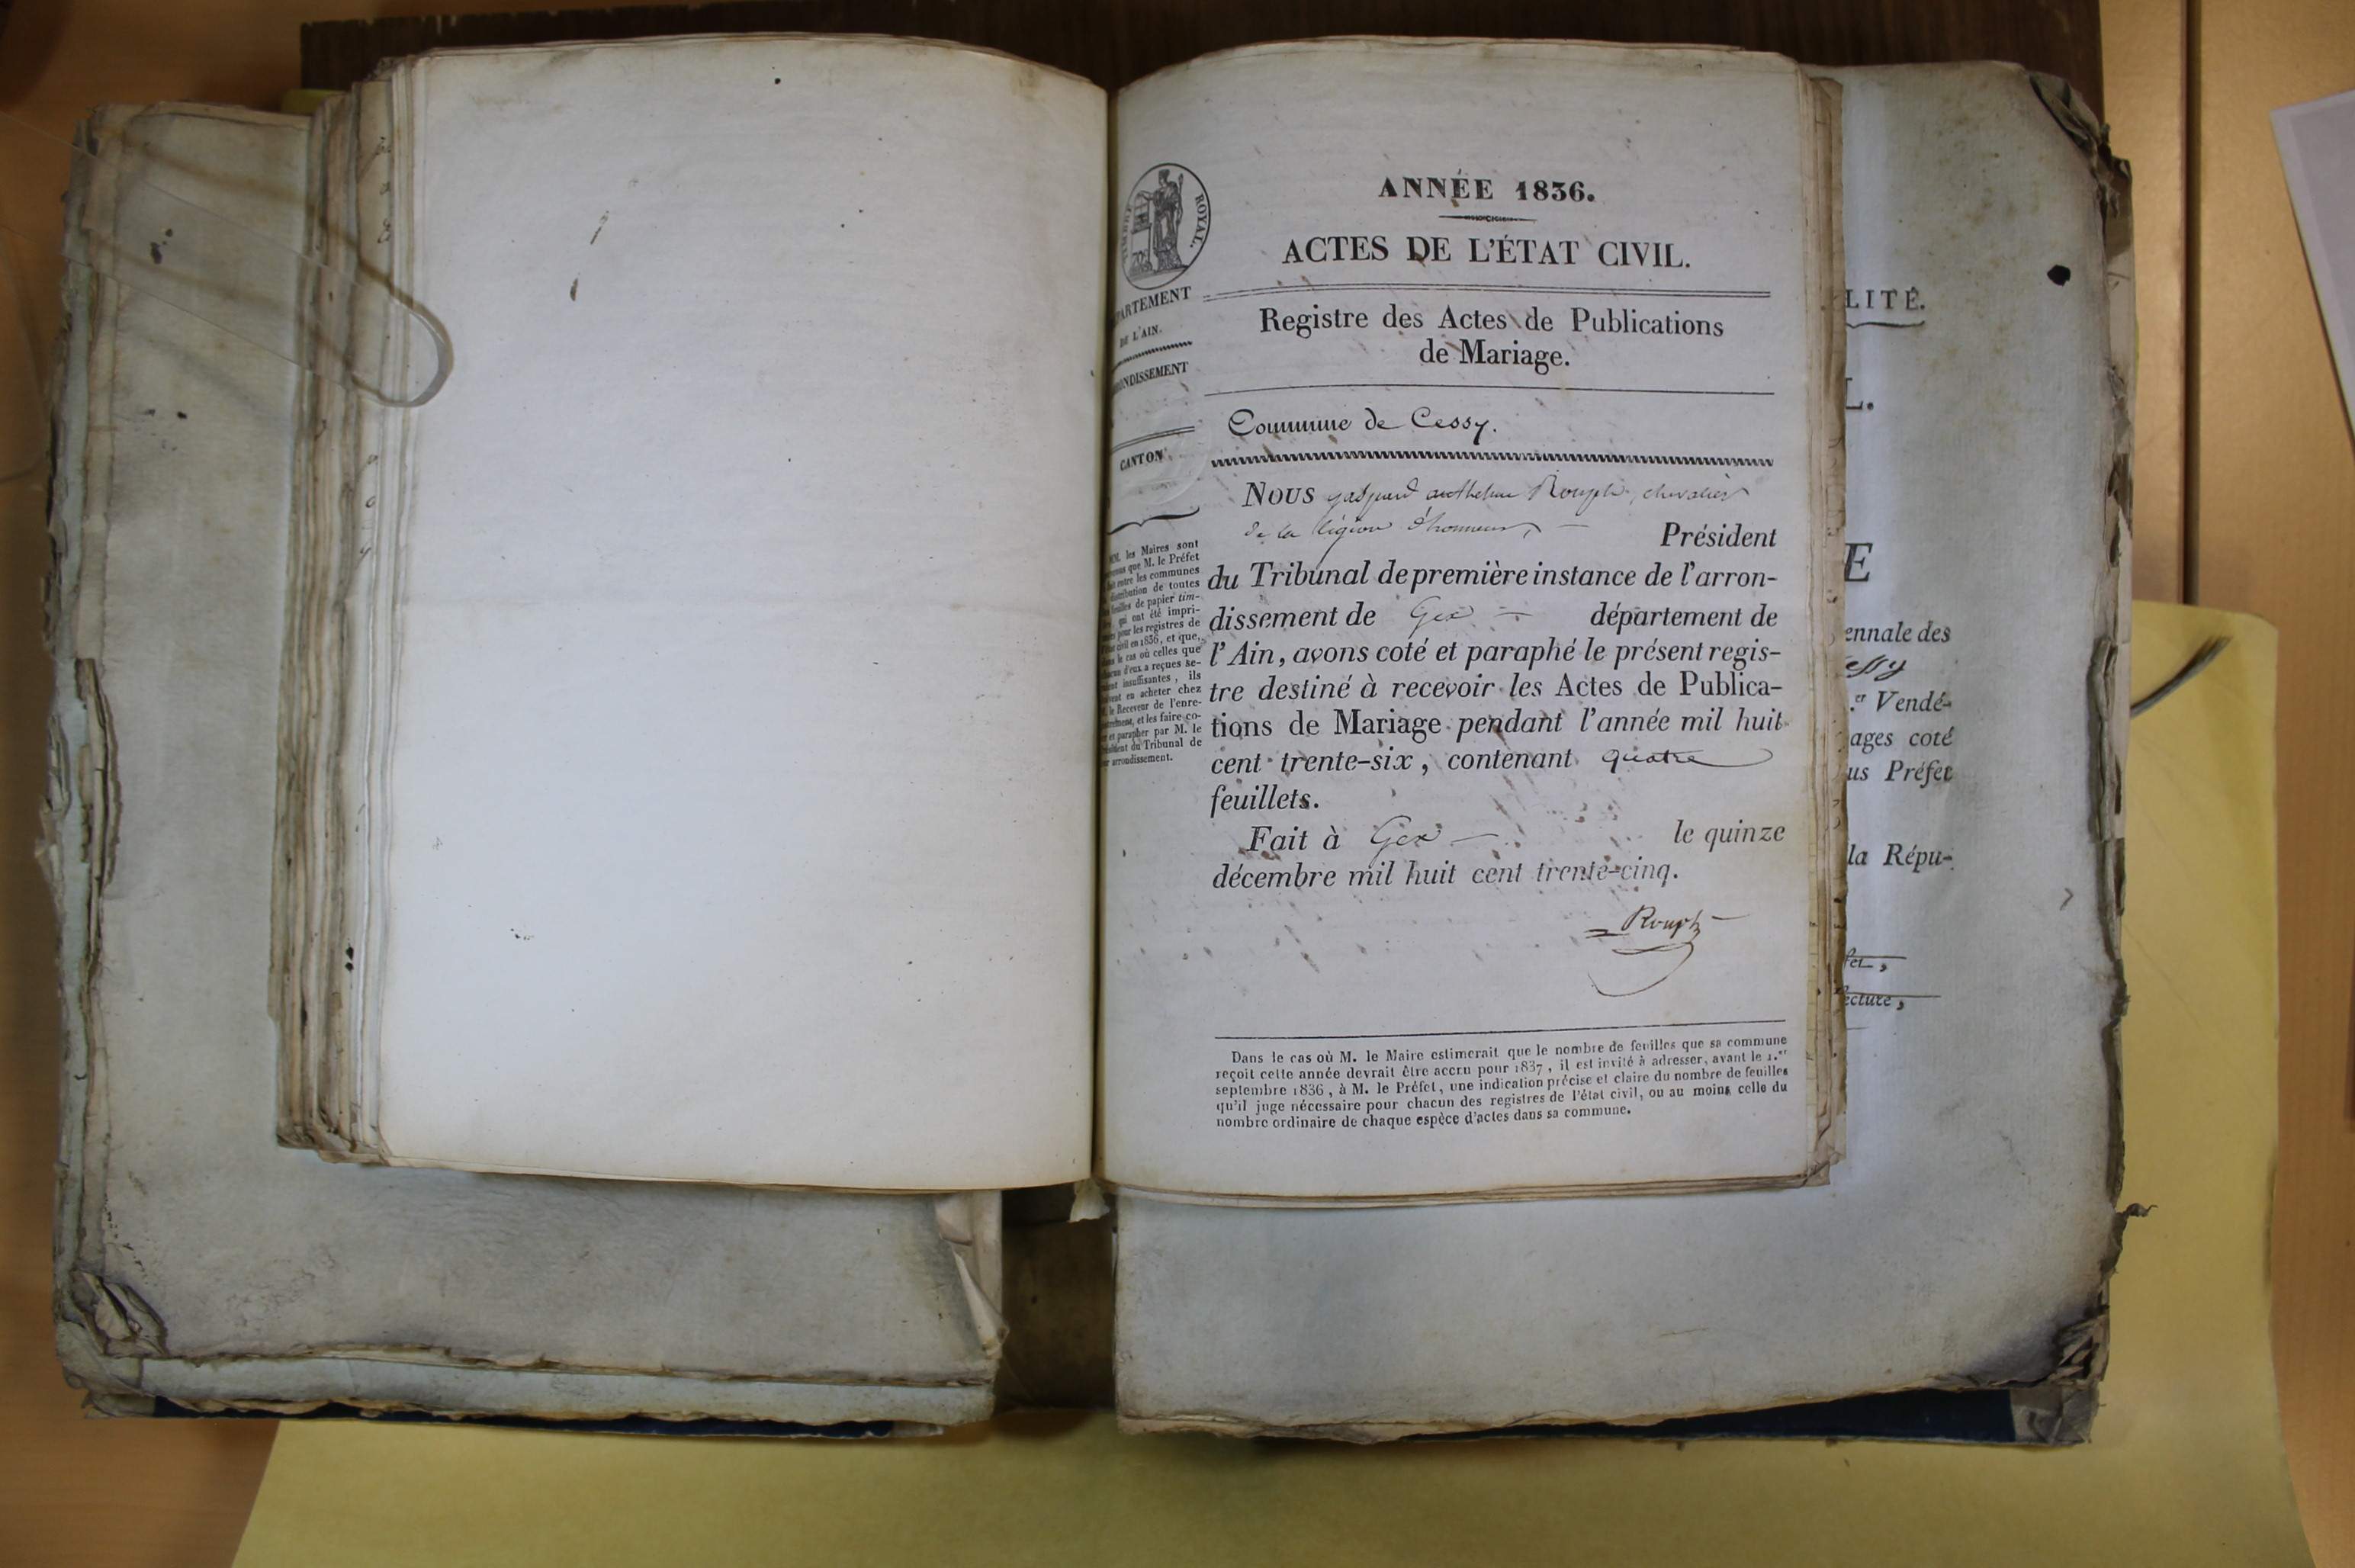 TIMBRE ROYAL.
PARTEMENT
DE L'AIN.
ONDISSEMENT
CANTON
MM. les Maires sont
que M. le Préfet
entre les communes
distribution de toutes
feuilles de papier tim-
qui ont été impri-
pour les registres de
civil en 1836, et que,
le cas où celles que
d'eux a reçues se-
insuffisantes, ils
en acheter chez
le Receveur de l'enre-
et les faire co-
et parapher par M. le
Tribunal de
arrondissement.
ANNÉE 1836.
ACTES DE L'ÉTAT CIVIL.
Registre des Actes de Publications
de Mariage.
Commune de Cessy.
NOUS gaspard anthelme Rouph, chevalier
de la légion d'honneur, Président
du Tribunal de première instance de l'arron-
dissement de Gex département de
l'Ain, avons coté et paraphé le présent regis-
tre destiné à recevoir les Actes de Publica-
tions de Mariage pendant l'année mil huit
cent trente-six, contenant quatre
feuillets.
Fait à Gex le quinze
décembre mil huit cent trente-cinq.
Rouph
Dans le cas où M. le Maire estimerait que le nombre de feuilles que sa commune
reçoit cette année devrait être accru pour 1837, il est invité à adresser, avant le 1.er
septembre 1836, à M. le Préfet, une indication précise et claire du nombre de feuilles
qu'il juge nécessaire pour chacun des registres de l'état civil, ou au moins celle du
nombre ordinaire de chaque espèce d'actes dans sa commune.
LITÉ.
L.
E
ennale des
essy
.er Vendé-
ages coté
us Préfet
la Répu-
fet,
ecture,